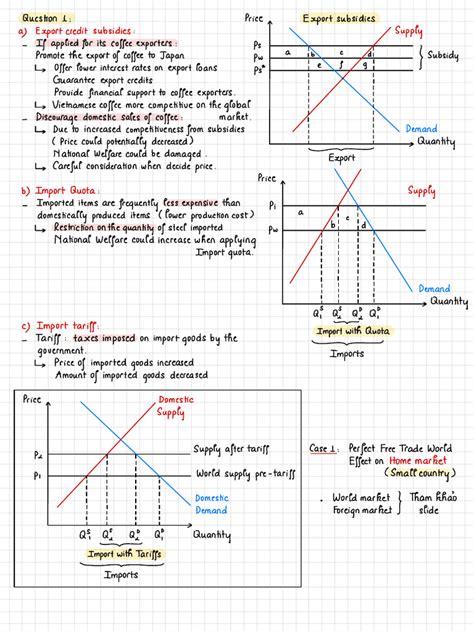 Question 1:
a) Export credit subsidies:
_ If applied for its coffee exporters:
Promote the export of coffee to Japan
↳ Offer lower interest rates on export loans
Guarantee export credits
Provide financial support to coffee exporters.
↳ Vietnamese coffee more competitive on the global market.
_ Discourage domestic sales of coffee:
↳ Due to increased competitiveness from subsidies
( Price could potentially decreased )
National Welfare could be damaged.
↳ Careful consideration when decide price.
Price
Export subsidies
Supply
Ps
Pw
Ps*
a
b
c
d
e
f
g
Subsidy
Demand
Quantity
Export
b) Import Quota:
_ Imported items are frequently less expensive than
domestically produced items ( lower production cost )
↳ Restriction on the quantity of steel imported
National Welfare could increase when applying
Import quota.
Price
Supply
P1
Pw
a
b
c
d
Demand
Quantity
Q1S Q2S Q2D Q1D
Import with Quota
Imports
c) Import tariff:
_ Tariff : taxes imposed on import goods by the
government.
↳ Price of imported goods increased
Amount of imported goods decreased
Price
Domestic
Supply
P2
Supply after tariff
P1
World supply pre-tariff
Domestic
Demand
Q1S Q2S Q2D Q1D
Quantity
Import with Tariffs
Imports
Case 1: Perfect Free Trade World
Effect on Home market
(Small country)
• World market } Tham khảo
Foreign market } slide